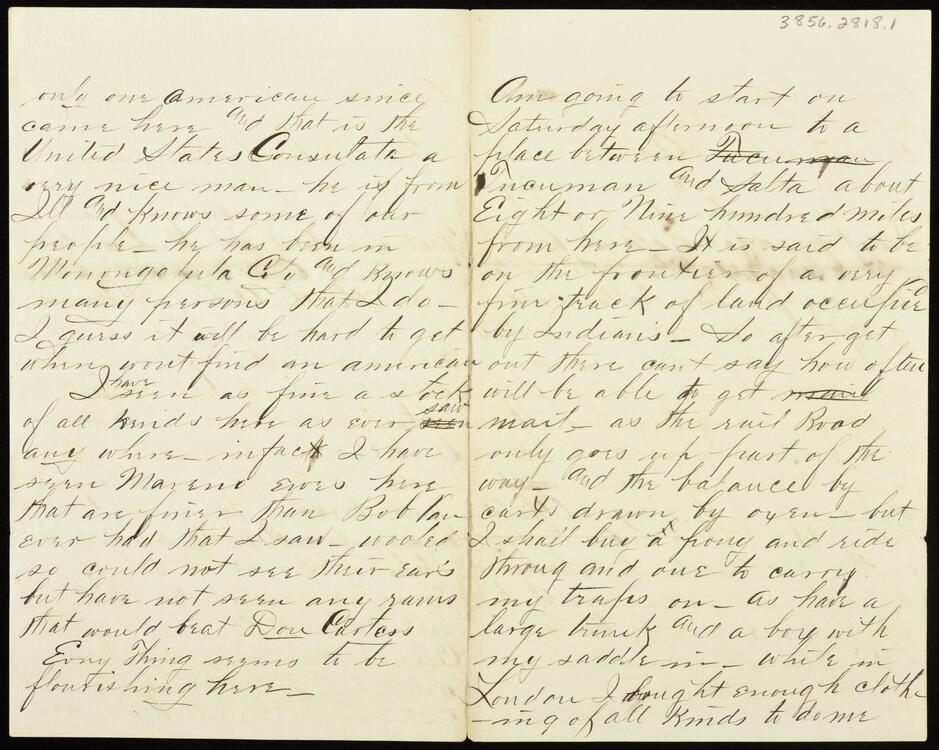 only one american since
came here and that is the
United States Consulate a
very nice man - he is from
Ill and knows some of our
people - he has been in
Monongahela City and knows
many persons that I do -
I guess it will be hard to get
when wont find an american
I have seen as fine a stock
of all kinds here as ever seen saw
any where - infact I have
seen Mareno ewes here
that are finer than Bob Van
ever had that I saw - wooled
so could not see their ears
but have not seen any rams
that would beat Don Cartess
Evry thing seems to be
flourishing here -
3856.2818.1
Am going to start on
Saturday afternoon to a
place between Tucuman
Tucuman and Salta about
Eight or Nine hundred miles
from here - It is said to be
on the frontier of a very
fine track of land occupied
by Indians - So after get
out there cant say how often
will be able to get mail
mail - as the rail Road
only goes up part of the
way - and the balance by
carts drawn by oxen - but
I shall buy a pony and ride
throug and one to carry
my traps on - as have a
large trunk and a box with
my saddle in - while in
London I bought enough cloth-
-ing of all kinds to do me